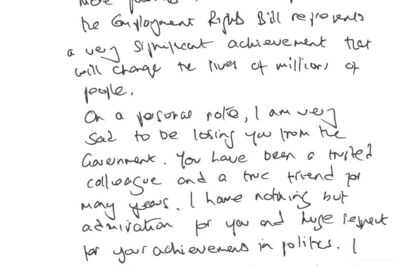 the Employment Rights Bill represents
a very significant achievement that
will change the lives of millions of
people.
On a personal note, I am very
sad to be losing you from the
Government. You have been a trusted
colleague and a true friend for
many years. I have nothing but
admiration for you and huge respect
for your achievements in politics. I